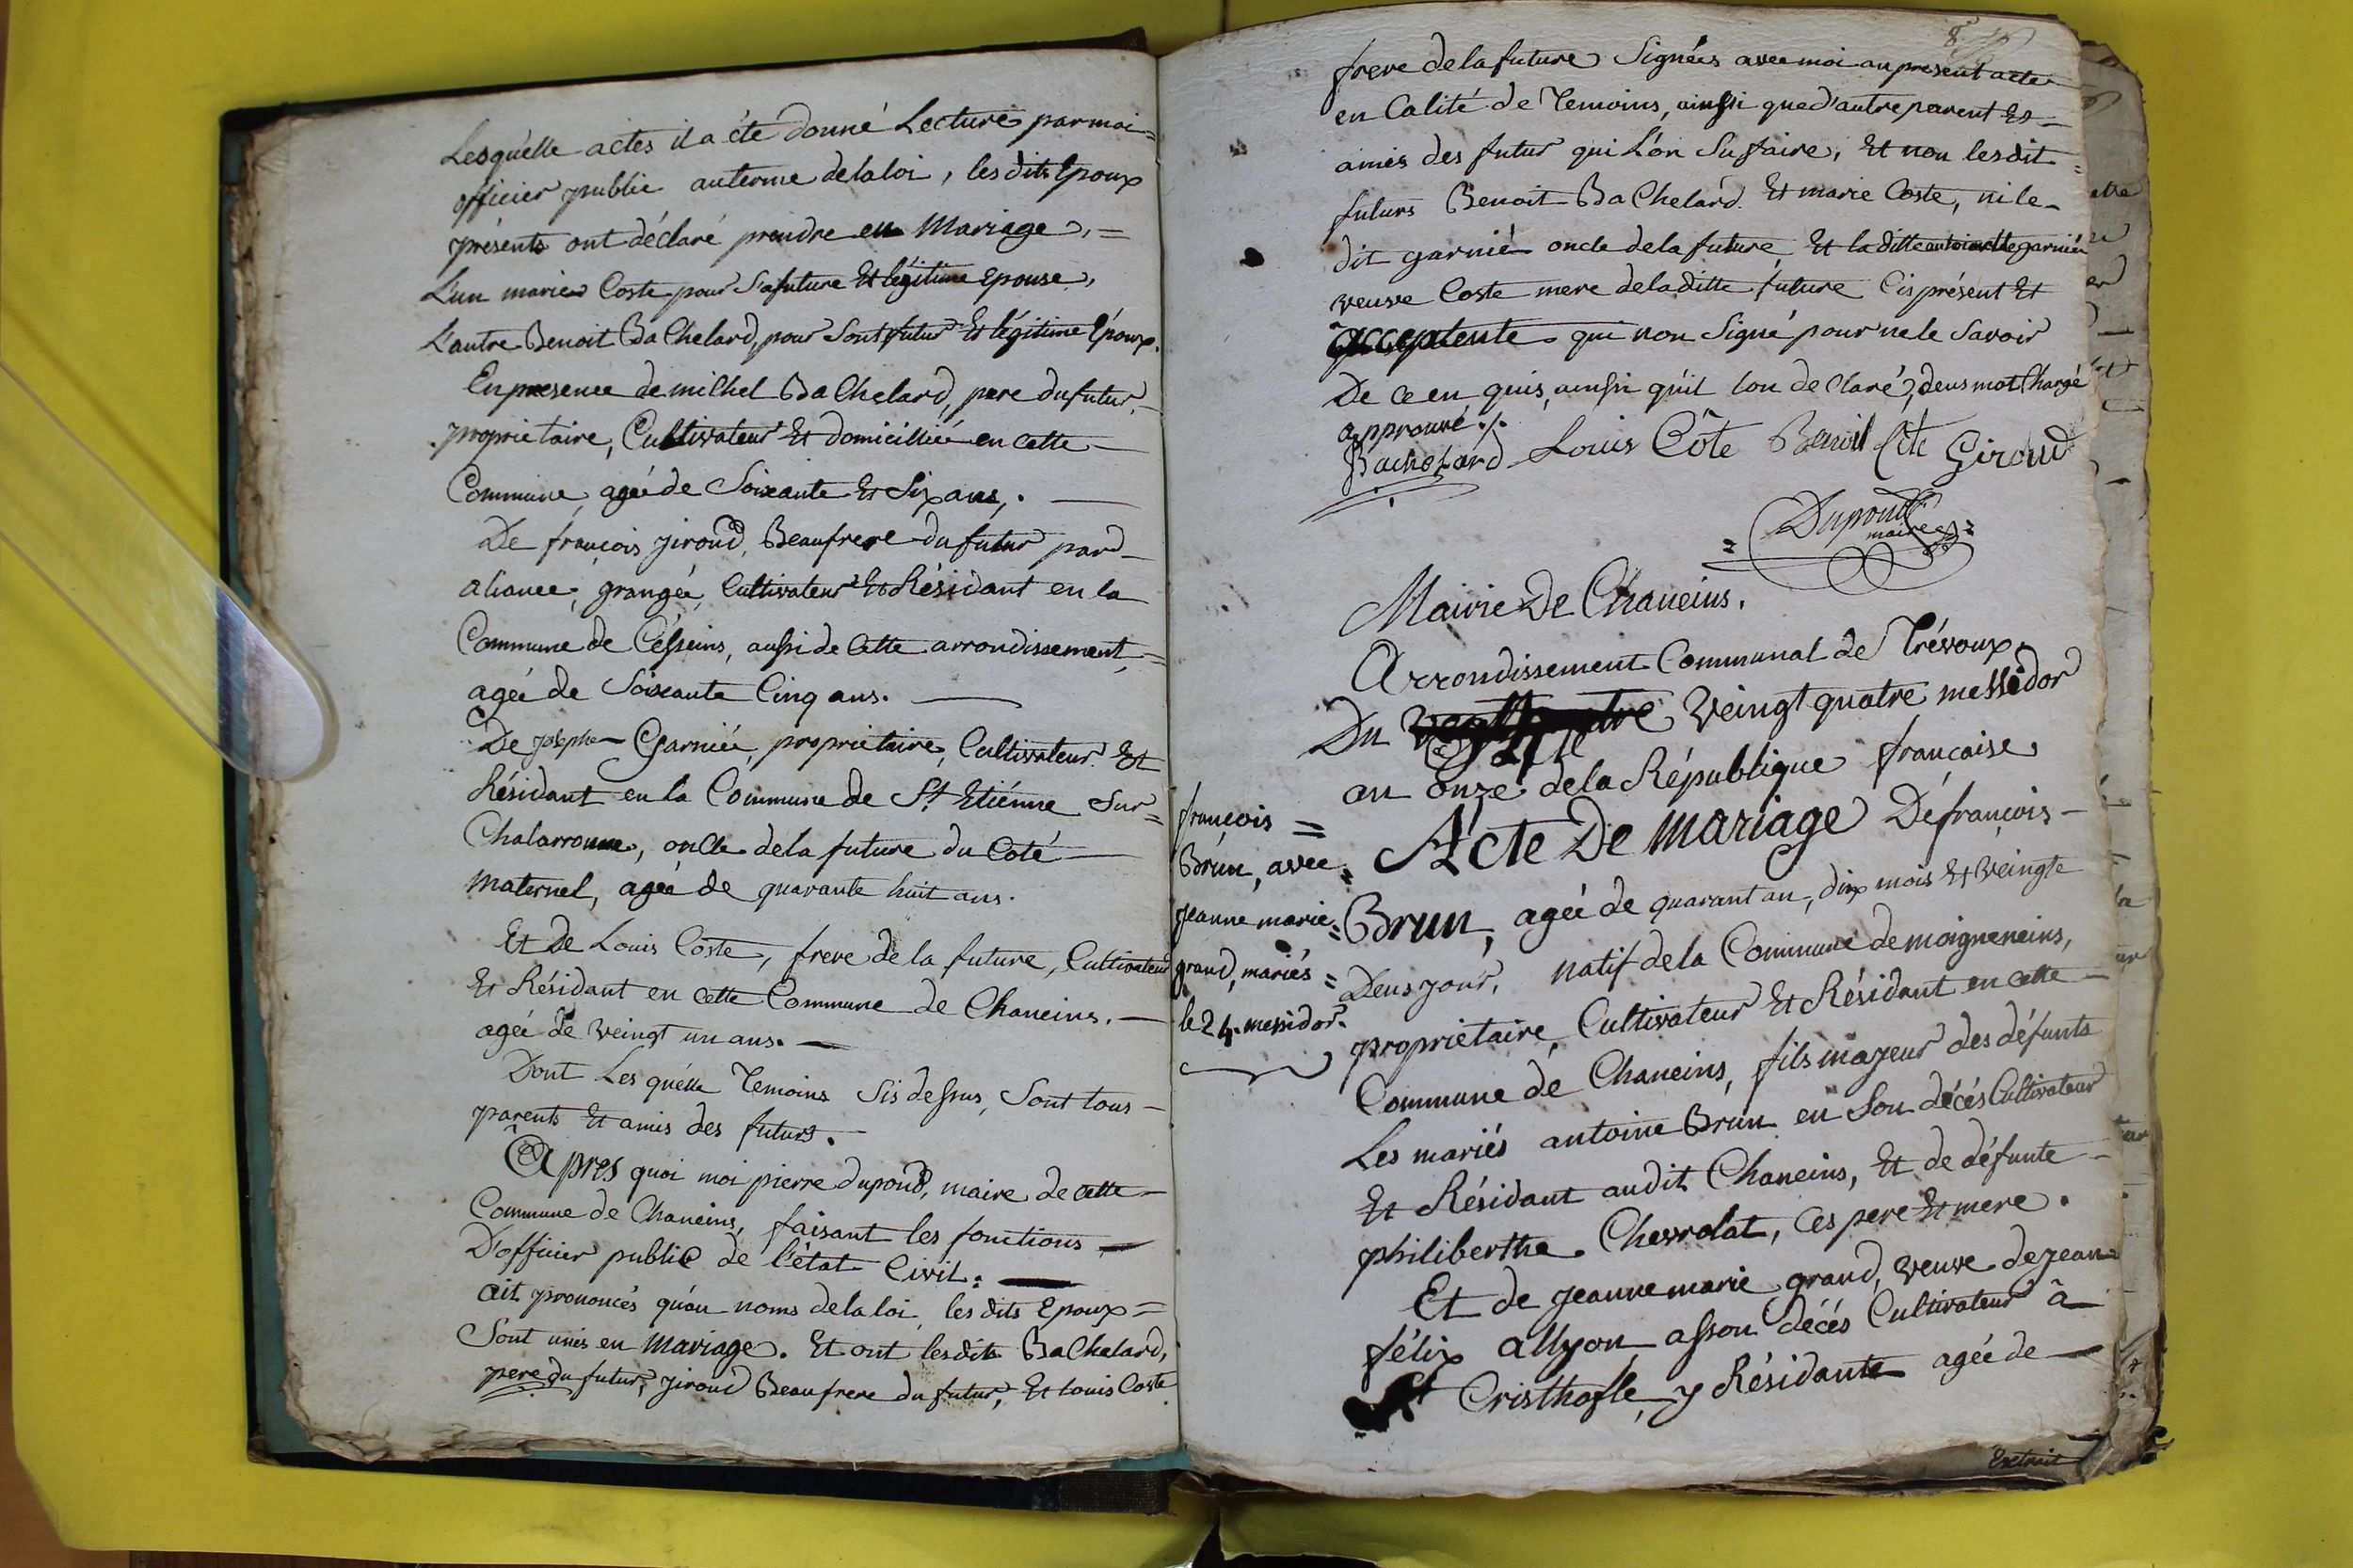 Lesquelle actes il a éte donné Lecture par moi =
officier public au terme de la loi, les dits Epoux
présents ont déclaré prendre en Mariage, =
L'un marie Coste pour Sa future Et légitime Epouse,
L'autre Benoit BaChelard, pour Sont futur Et légitime Epoux.
En presence de miChel BaChelard, pere du futur,
propriétaire, Cultivateur Et domicilliée en cette —
Commune, agée de Soixante Et Six ans, . —
De françois jiroud, Beaufrere du futur par —
aliance, grangée, Cultivateur Et Résidant en la
Commune de Césseins, aussi de Cette arrondissement, =
agée de Soixante Cinq ans. —
De joseph Garniée, propriétaire, Cultivateur Et
Résidant en la Commune de St Etiénne Sur =
Chalaronne, oncle de la future du Coté —
maternel, agée de quarante huit ans.
Et De Louis Coste, frere de la future, Cultivateur
Et Résidant en cette Commune de Chaneins. —
agée de veingt un ans. —
Dont Les quélle Temoins Sis dessus, Sont tous —
parents Et amis des futurs.
Apres quoi moi pierre dupond, maire de cette —
Commune de Chaneins, faisant les fonctions —
D'officier public de l'état Civil: —
ait prononcés qu'au noms de la loi, les dits Epoux =
Sont unis en Mariage. Et ont lesdits BaChelard,
pere du futur, jiroud Beaufrere du futur, Et Louis Coste
8
frere de la future Signées avec moi au present acte
en Calité de Temoins, ainssi que d'autre parent Et —
amis des futur qui L'on Su faire, Et non lesdit =
futurs Benoit BaChelard Et marie Coste, ni le —
dit garnié oncle de la future, Et la ditte antoinette garniée
veuve Coste mere de laditte future Cis présent Et
acceptente qui non Signé pour ne le Savoir
De ce en quis, ainssi qu'il lon deClaré, deus mot Chargé
approuvé ./.
Bachelard Louis Côte Benoit Cote Giroud
Dupond
maire
Mairie De Chaneins.
Arrondissement Communal de Trévoux.
Du veingt quatre messidor
an onze de la République francaise
françois =
Brun, avec =
jeanne marie =
grand, mariés =
le 24. messidor.
Acte De mariage De françois —
Brun, agée de quarant an, dix mois Et veingte
Deus jour, natif de la Commune de moigneneins,
propriétaire, Cultivateur Et Résidant en cette —
Commune de Chaneins, fils majeur des défunts
Les mariés antoine Brun en Son décés Cultivateur
Et Résidant audit Chaneins, Et de défunte —
philiberthe Chevrolat, Ces pere Et mere.
Et de jeanne marie grand, veuve de jean =
félix allyon, asson décés Cultivateur à —
St Cristhofle, y Résidante agée de —
Extrait